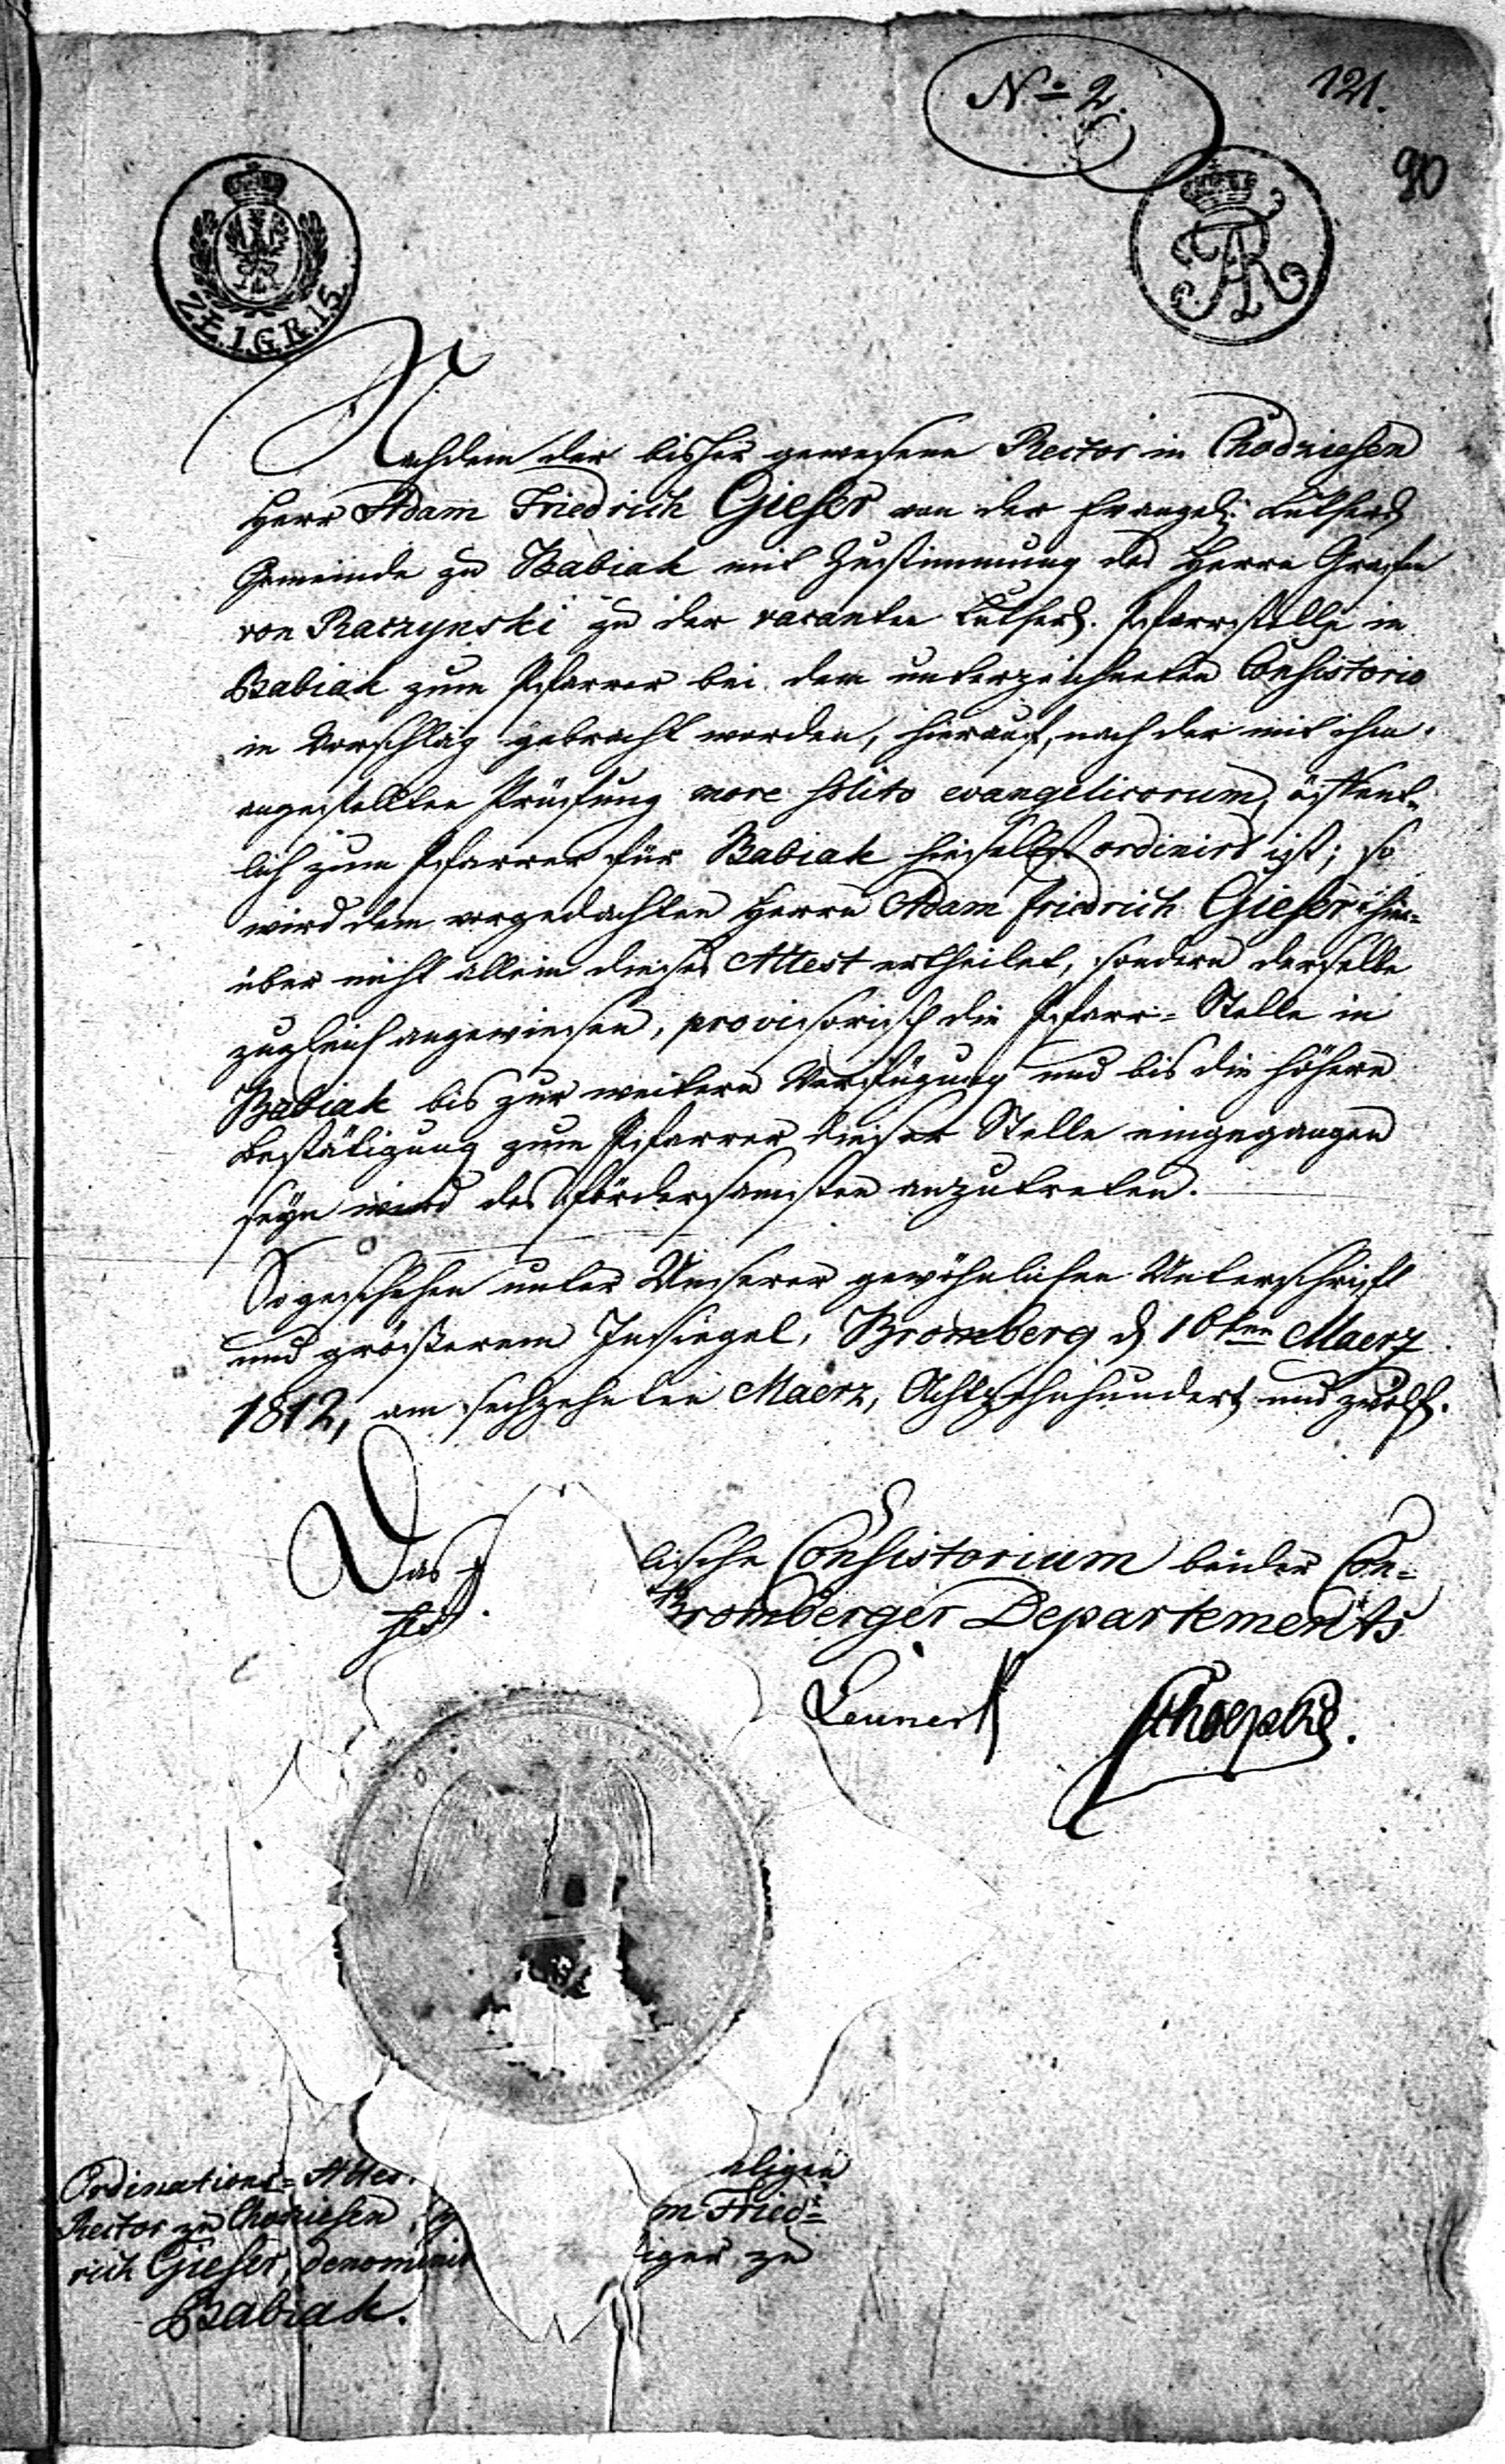 No 2.
121.
90
ZŁ.1.G.R.15.
FAR
Nachdem der bisher gewesene Rector in Chodziesen
Herr Adam Friedrich Gieser von der Evangel: Luthers
Gemeinde zu Babiak mit Zustimmung des Herrn Grafen
von Raczynski zu der vacanten Luthers. Pfarrstelle in
Babiak zum Pfarrer bei dem unterzeichneten Consistorio
in Vorschlag gebracht worden, hierauf, nach der mit ihm
angestellten Prüfung more solito evangelicorum, öffent-
lich zum Pfarrer für Babiak hieselbst ordinirt ist; so
wird dem vorgedachten Herrn Adam Friedrich Gieser hier-
über nicht allein dieses Attest ertheilet, sondern derselbe
zugleich angewiesen, provisorisch die Pfarr-Stelle in
Babiak bis zur weitern Verfügung und bis die höhere
Bestätigung zum Pfarrer dieser Stelle eingegangen
seyn wird des fördersamsten anzutreten.
So geschehen unter Unserer gewöhnlichen Unterschrift
und größerem Insiegel, Bromberg d 16ten Maerz
1812, am sechzehnten Maerz, Achtzehnhundert und zwölf.
Das lische Consistorium beider Con-
Bromberger Departements
Ordinations-Attes
aligen
Rector zu Chodziesen
m Fried-
rich Gieser, denominir
iger zu
Babiak.